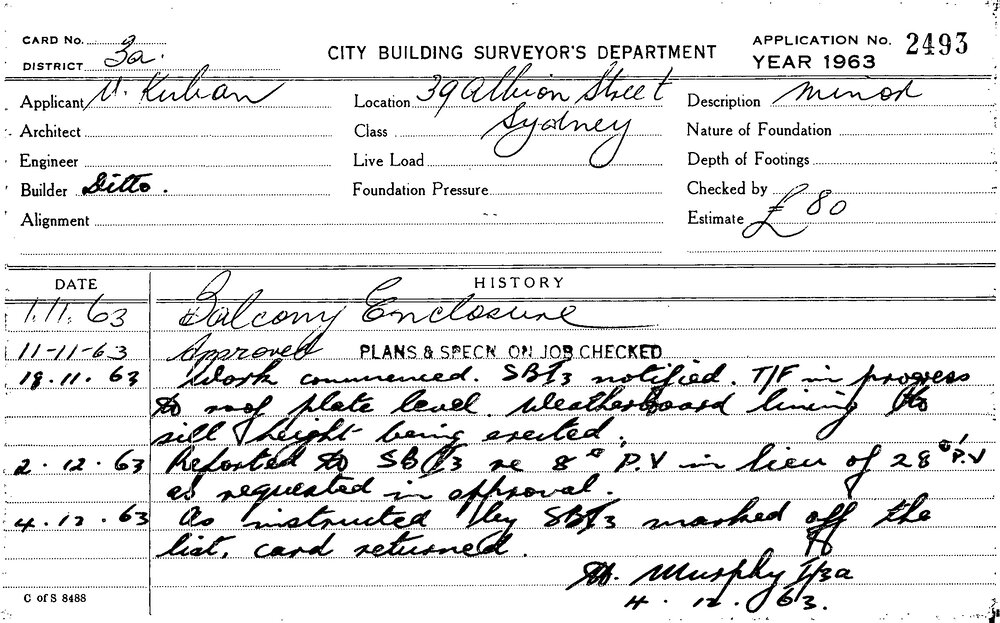 CARD No. 3a.
DISTRICT
CITY BUILDING SURVEYOR'S DEPARTMENT
APPLICATION No. 2493
YEAR 1963
Applicant
Location 39 Albion Street
Sydney
Description Minor
Architect
Class
Nature of Foundation
Engineer
Live Load
Depth of Footings
Builder Ditto.
Foundation Pressure
Checked by
Alignment
Estimate £80
DATE HISTORY
1.11.63 Balcony Enclosure
11-11-63 Approved PLANS & SPECN ON JOB CHECKED
18.11.63 Work commenced. notified. T/F in progress
to roof plate level. Weatherboard lining to
sill height being erected.
2.12.63 Reported to re 8" P.V in lieu of 28" P.V
as requested in approval.
4.12.63 As instructed by marked off the
list, card returned.
Murphy
4.12.63.
C of S 8488